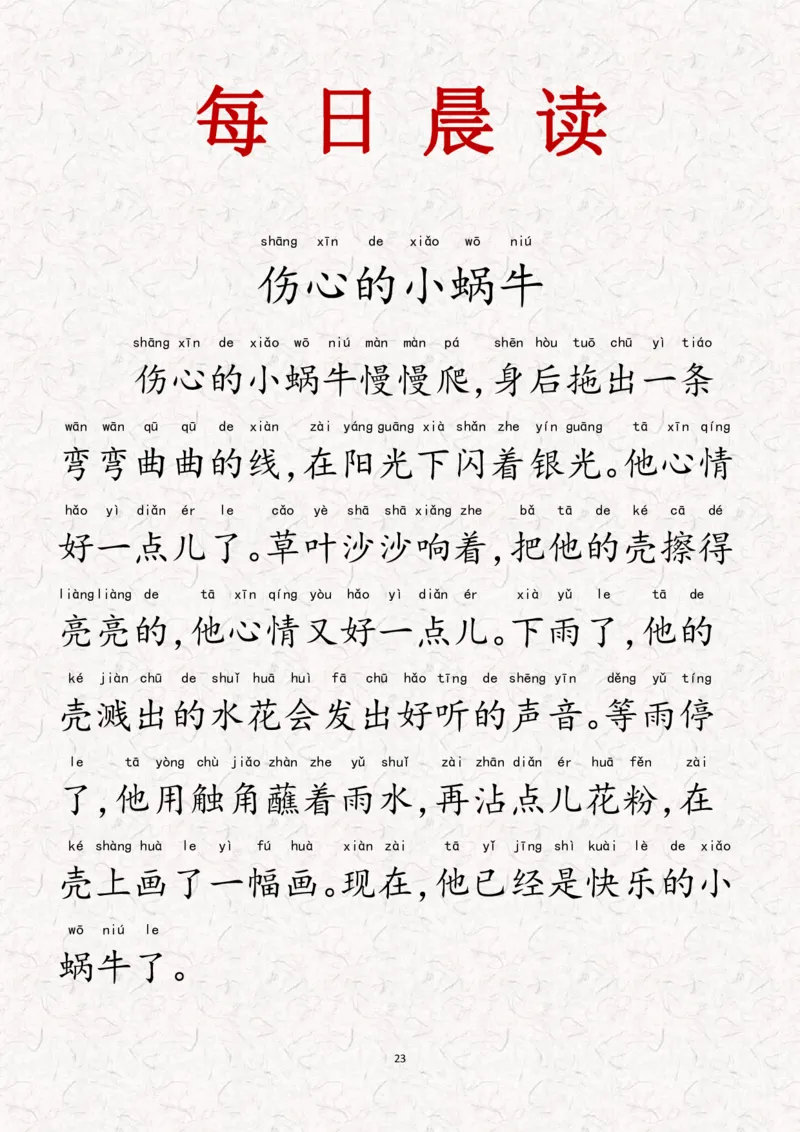 每日晨读
shāng xīn de xiǎo wō niú
伤心的小蜗牛
shāng xīn de xiǎo wō niú màn màn pá shēn hòu tuō chū yì tiáo
伤心的小蜗牛慢慢爬,身后拖出一条
wān wān qū qū de xiàn zài yáng guāng xià shǎn zhe yín guāng tā xīn qíng
弯弯曲曲的线,在阳光下闪着银光。他心情
hǎo yì diǎn ér le cǎo yè shā shā xiǎng zhe bǎ tā de ké cā dé
好一点儿了。草叶沙沙响着,把他的壳擦得
liàng liàng de tā xīn qíng yòu hǎo yì diǎn ér xià yǔ le tā de
亮亮的,他心情又好一点儿。下雨了,他的
ké jiàn chū de shuǐ huā huì fā chū hǎo tīng de shēng yīn děng yǔ tíng
壳溅出的水花会发出好听的声音。等雨停
le tā yòng chù jiǎo zhàn zhe yǔ shuǐ zài zhān diǎn ér huā fěn zài
了,他用触角蘸着雨水,再沾点儿花粉,在
ké shàng huà le yì fú huà xiàn zài tā yǐ jīng shì kuài lè de xiǎo
壳上画了一幅画。现在,他已经是快乐的小
wō niú le
蜗牛了。
23